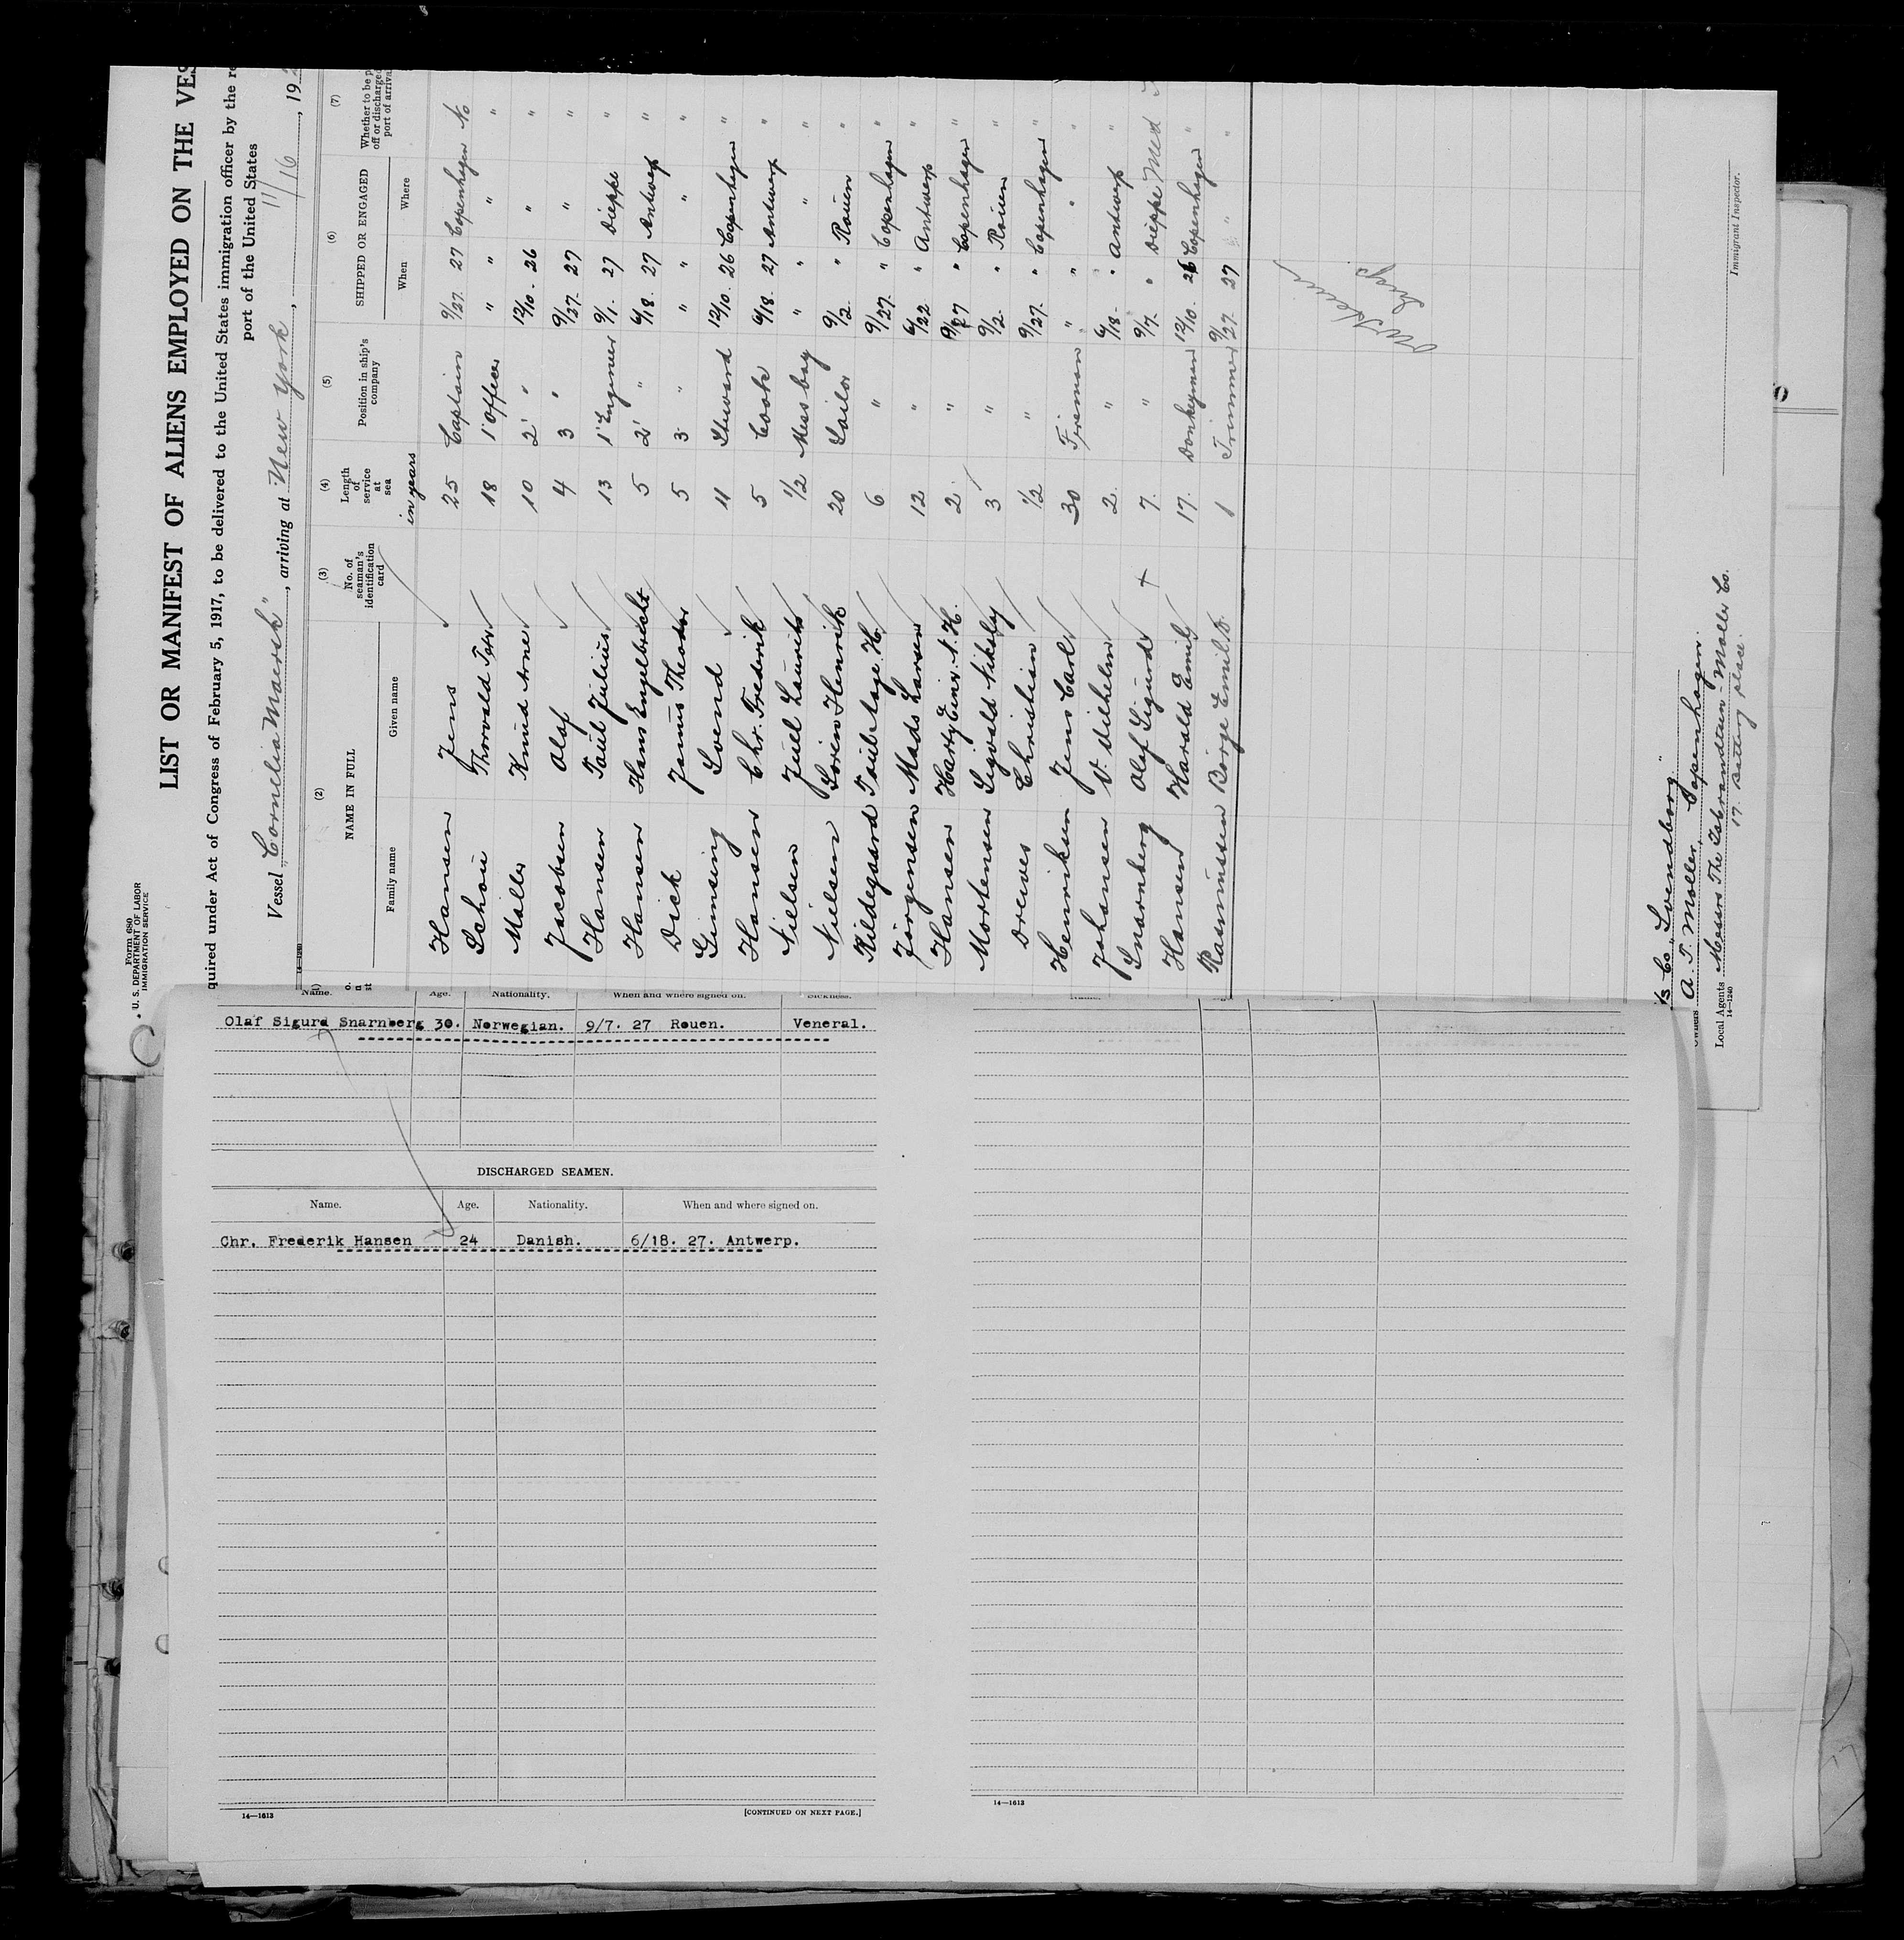 Form 680
U. S. DEPARTMENT OF LABOR
IMMIGRATION SERVICE
LIST OR MANIFEST OF ALIENS EMPLOYED ON THE VES
quired under Act of Congress of February 5, 1917, to be delivered to the United States immigration officer by the re
port of the United States
Vessel "Cornelia Maersk", arriving at New York, 11/16, 192
(2) (3) (4) (5) (6) (7)
NAME IN FULL No. of seaman's identification card Length of service at sea Position in ship's company SHIPPED OR ENGAGED Whether to be p off or discharged port of arrival
Family name Given name in years When Where
Hansen Jens 25 Captain 9/27. 27 Copenhagen No
Schou Thorvald 18 1' Officer " " " "
Möller Knud Arne 10 2' " 12/10. 26 " "
Jacobsen Olaf 4 3 " 9/27. 27 " "
Hansen Poul Julius 13 1' Engineer 9/1. 27 Dieppe "
Hansen Hans Engelbrecht 5 2' " 6/18. 27 Antwerp "
Dick Januis Theodor 5 3. " " " "
Grimsing Svend 11 Steward 12/10. 26 Copenhagen "
Hansen Chr. Frederik 5 Cook 6/18. 27 Antwerp "
Nielsen Juel Laurits 1/2 Mess boy " " " "
Nielsen Sören Henrik 20 Sailor 9/2. " Rouen "
Kildegaard Poul Aage H. 6 " 9/27. " Copenhagen "
Jörgensen Mads Larsen 12 " 6/22 " Antwerp "
Hansen Harry Einer N. H. 2 " 9/27 " Copenhagen "
Mortensen Sigvald Nikolaj 3 " 9/2. " Rouen "
Drewes Christian 1/2 " 9/27. " Copenhagen "
Henriksen Jens Carl 30 Fireman " " " "
Johansen V. Vilhelm 2 " 6/18. " Antwerp "
Snarnberg Olaf Sigurd + 7. " 9/7. " Dieppe Med
Hansen Harald Emil 17. Donkeyman 12/10. 26 Copenhagen "
Rasmussen Börge Emil 1 Trimmer 9/27. 27 " "
Immigrant Inspector.
"Svendborg"
Owners A. P. Möller, Copenhagen.
Local Agents Messrs The Isbrandtsen-Moller Co.
17. Battery place.
14—1240
Name. Age. Nationality. When and where signed on. Sickness.
Olaf Sigurd Snarnberg 30. Norwegian. 9/7. 27 Rouen. Veneral.
DISCHARGED SEAMEN.
Name. Age. Nationality. When and where signed on.
Chr. Frederik Hansen 24 Danish. 6/18. 27. Antwerp.
14—1613 [CONTINUED ON NEXT PAGE.]
14—1613